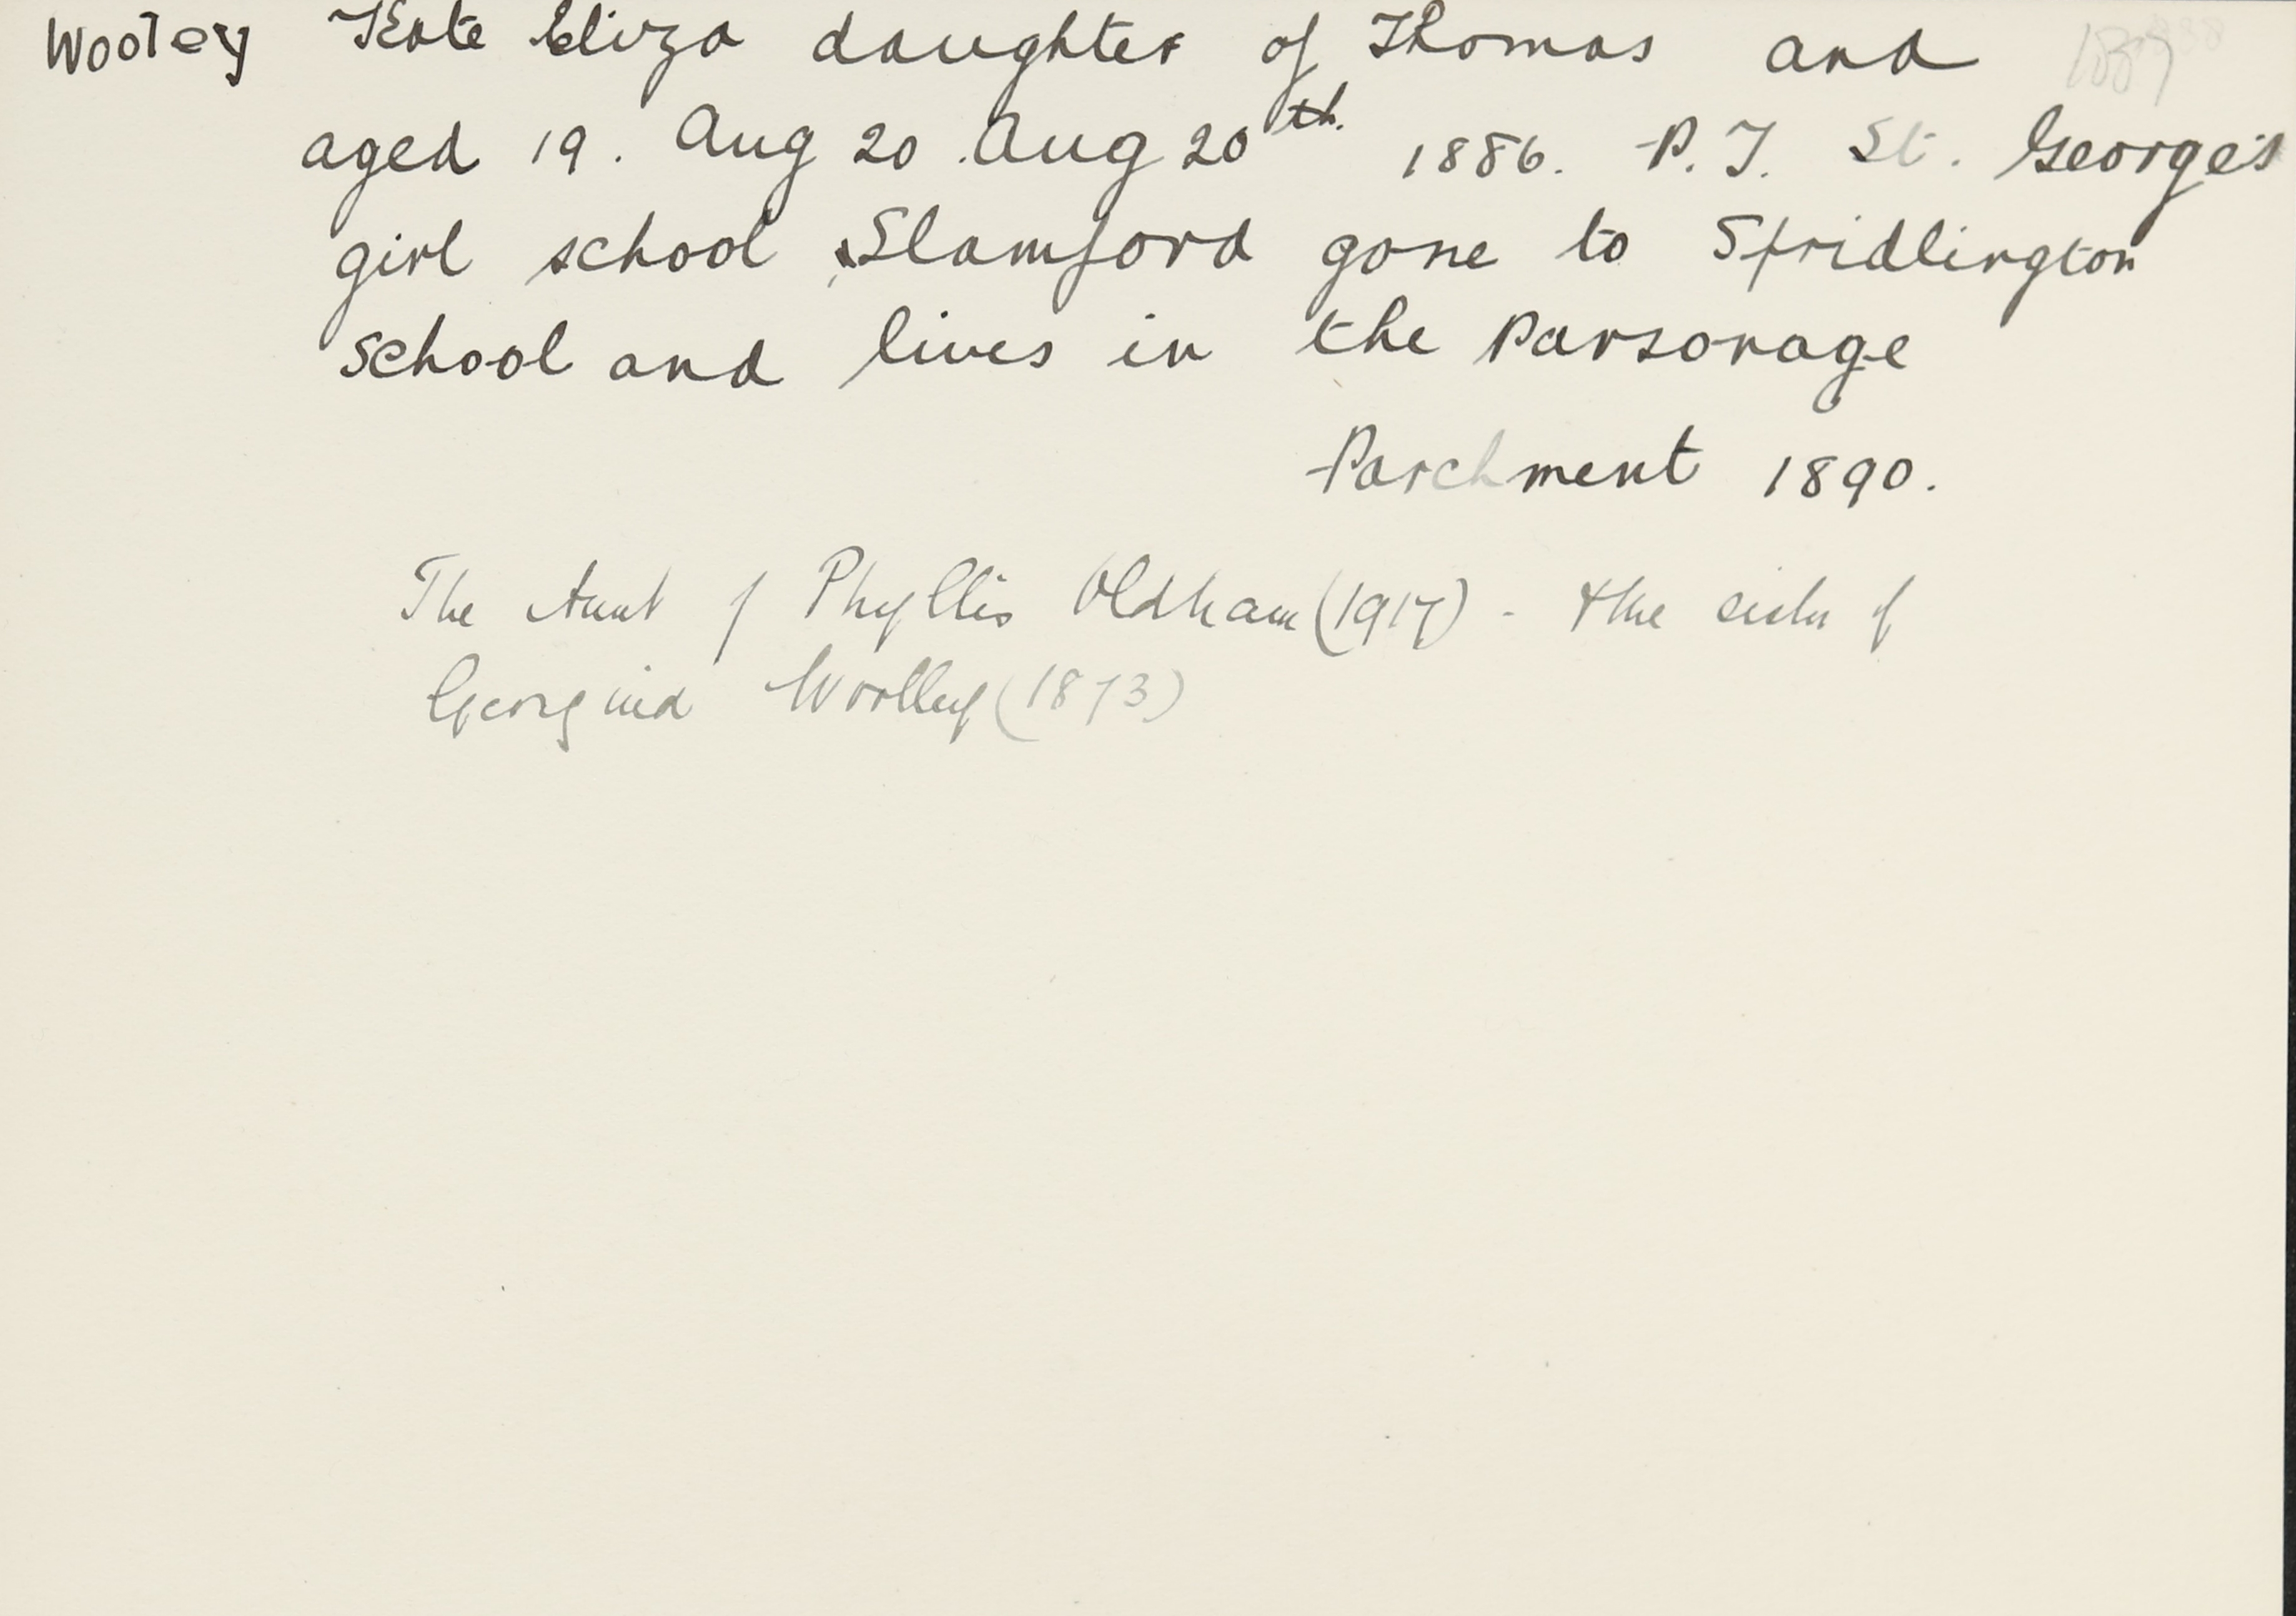 Wooley Kate Eliza daughter of Thomas and 1887
aged 19. Aug 20. Aug 20th. 1886. P.T. St. George's
girl school, Stamford gone to Spridlington
School and lives in the Parsonage
Parchment 1890.
The Aunt of Phyllis Oldham (1917) - & the sister of
Georgina Woolley (1873)